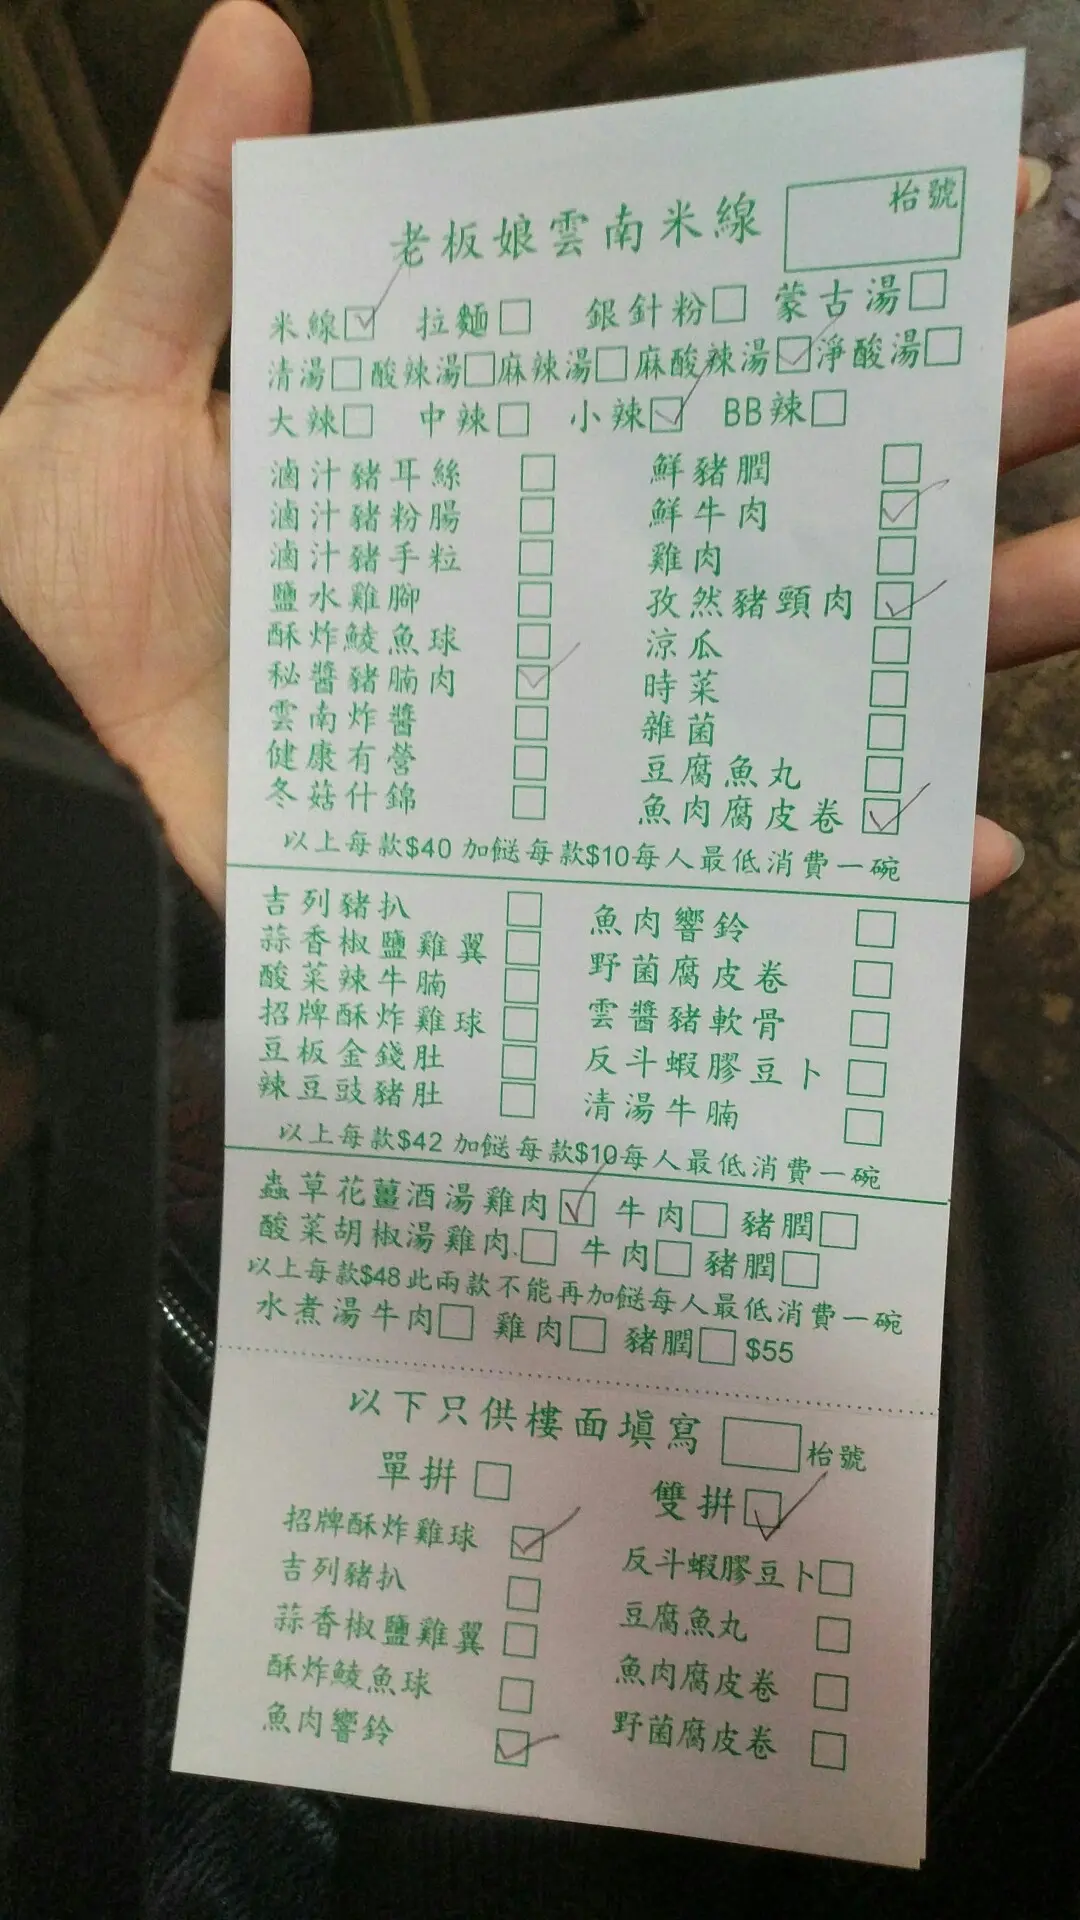 老板娘雲南米線 枱號
米線☑ 拉麵□ 銀針粉□ 蒙古湯□
清湯□ 酸辣湯□ 麻辣湯□ 麻酸辣湯☑ 淨酸湯□
大辣□ 中辣□ 小辣☑ BB辣□
滷汁豬耳絲□ 鮮豬膶□
滷汁豬粉腸□ 鮮牛肉☑
滷汁豬手粒□ 雞肉□
鹽水雞腳□ 孜然豬頸肉☑
酥炸鯪魚球□ 涼瓜□
秘醬豬腩肉☑ 時菜□
雲南炸醬□ 雜菌□
健康有營□ 豆腐魚丸□
冬菇什錦□ 魚肉腐皮卷☑
以上每款$40 加餸每款$10每人最低消費一碗
吉列豬扒□ 魚肉響鈴□
蒜香椒鹽雞翼□ 野菌腐皮卷□
酸菜辣牛腩□ 雲醬豬軟骨□
招牌酥炸雞球□ 反斗蝦膠豆卜□
豆板金錢肚□ 清湯牛腩□
辣豆豉豬肚□
以上每款$42 加餸每款$10每人最低消費一碗
蟲草花薑酒湯雞肉☑ 牛肉□ 豬膶□
酸菜胡椒湯雞肉□ 牛肉□ 豬膶□
以上每款$48此兩款不能再加餸每人最低消費一碗
水煮湯牛肉□ 雞肉□ 豬膶□ $55
以下只供樓面填寫 枱號
單拼□ 雙拼☑
招牌酥炸雞球☑ 反斗蝦膠豆卜□
吉列豬扒□ 豆腐魚丸□
蒜香椒鹽雞翼□ 魚肉腐皮卷□
酥炸鯪魚球□ 野菌腐皮卷□
魚肉響鈴☑